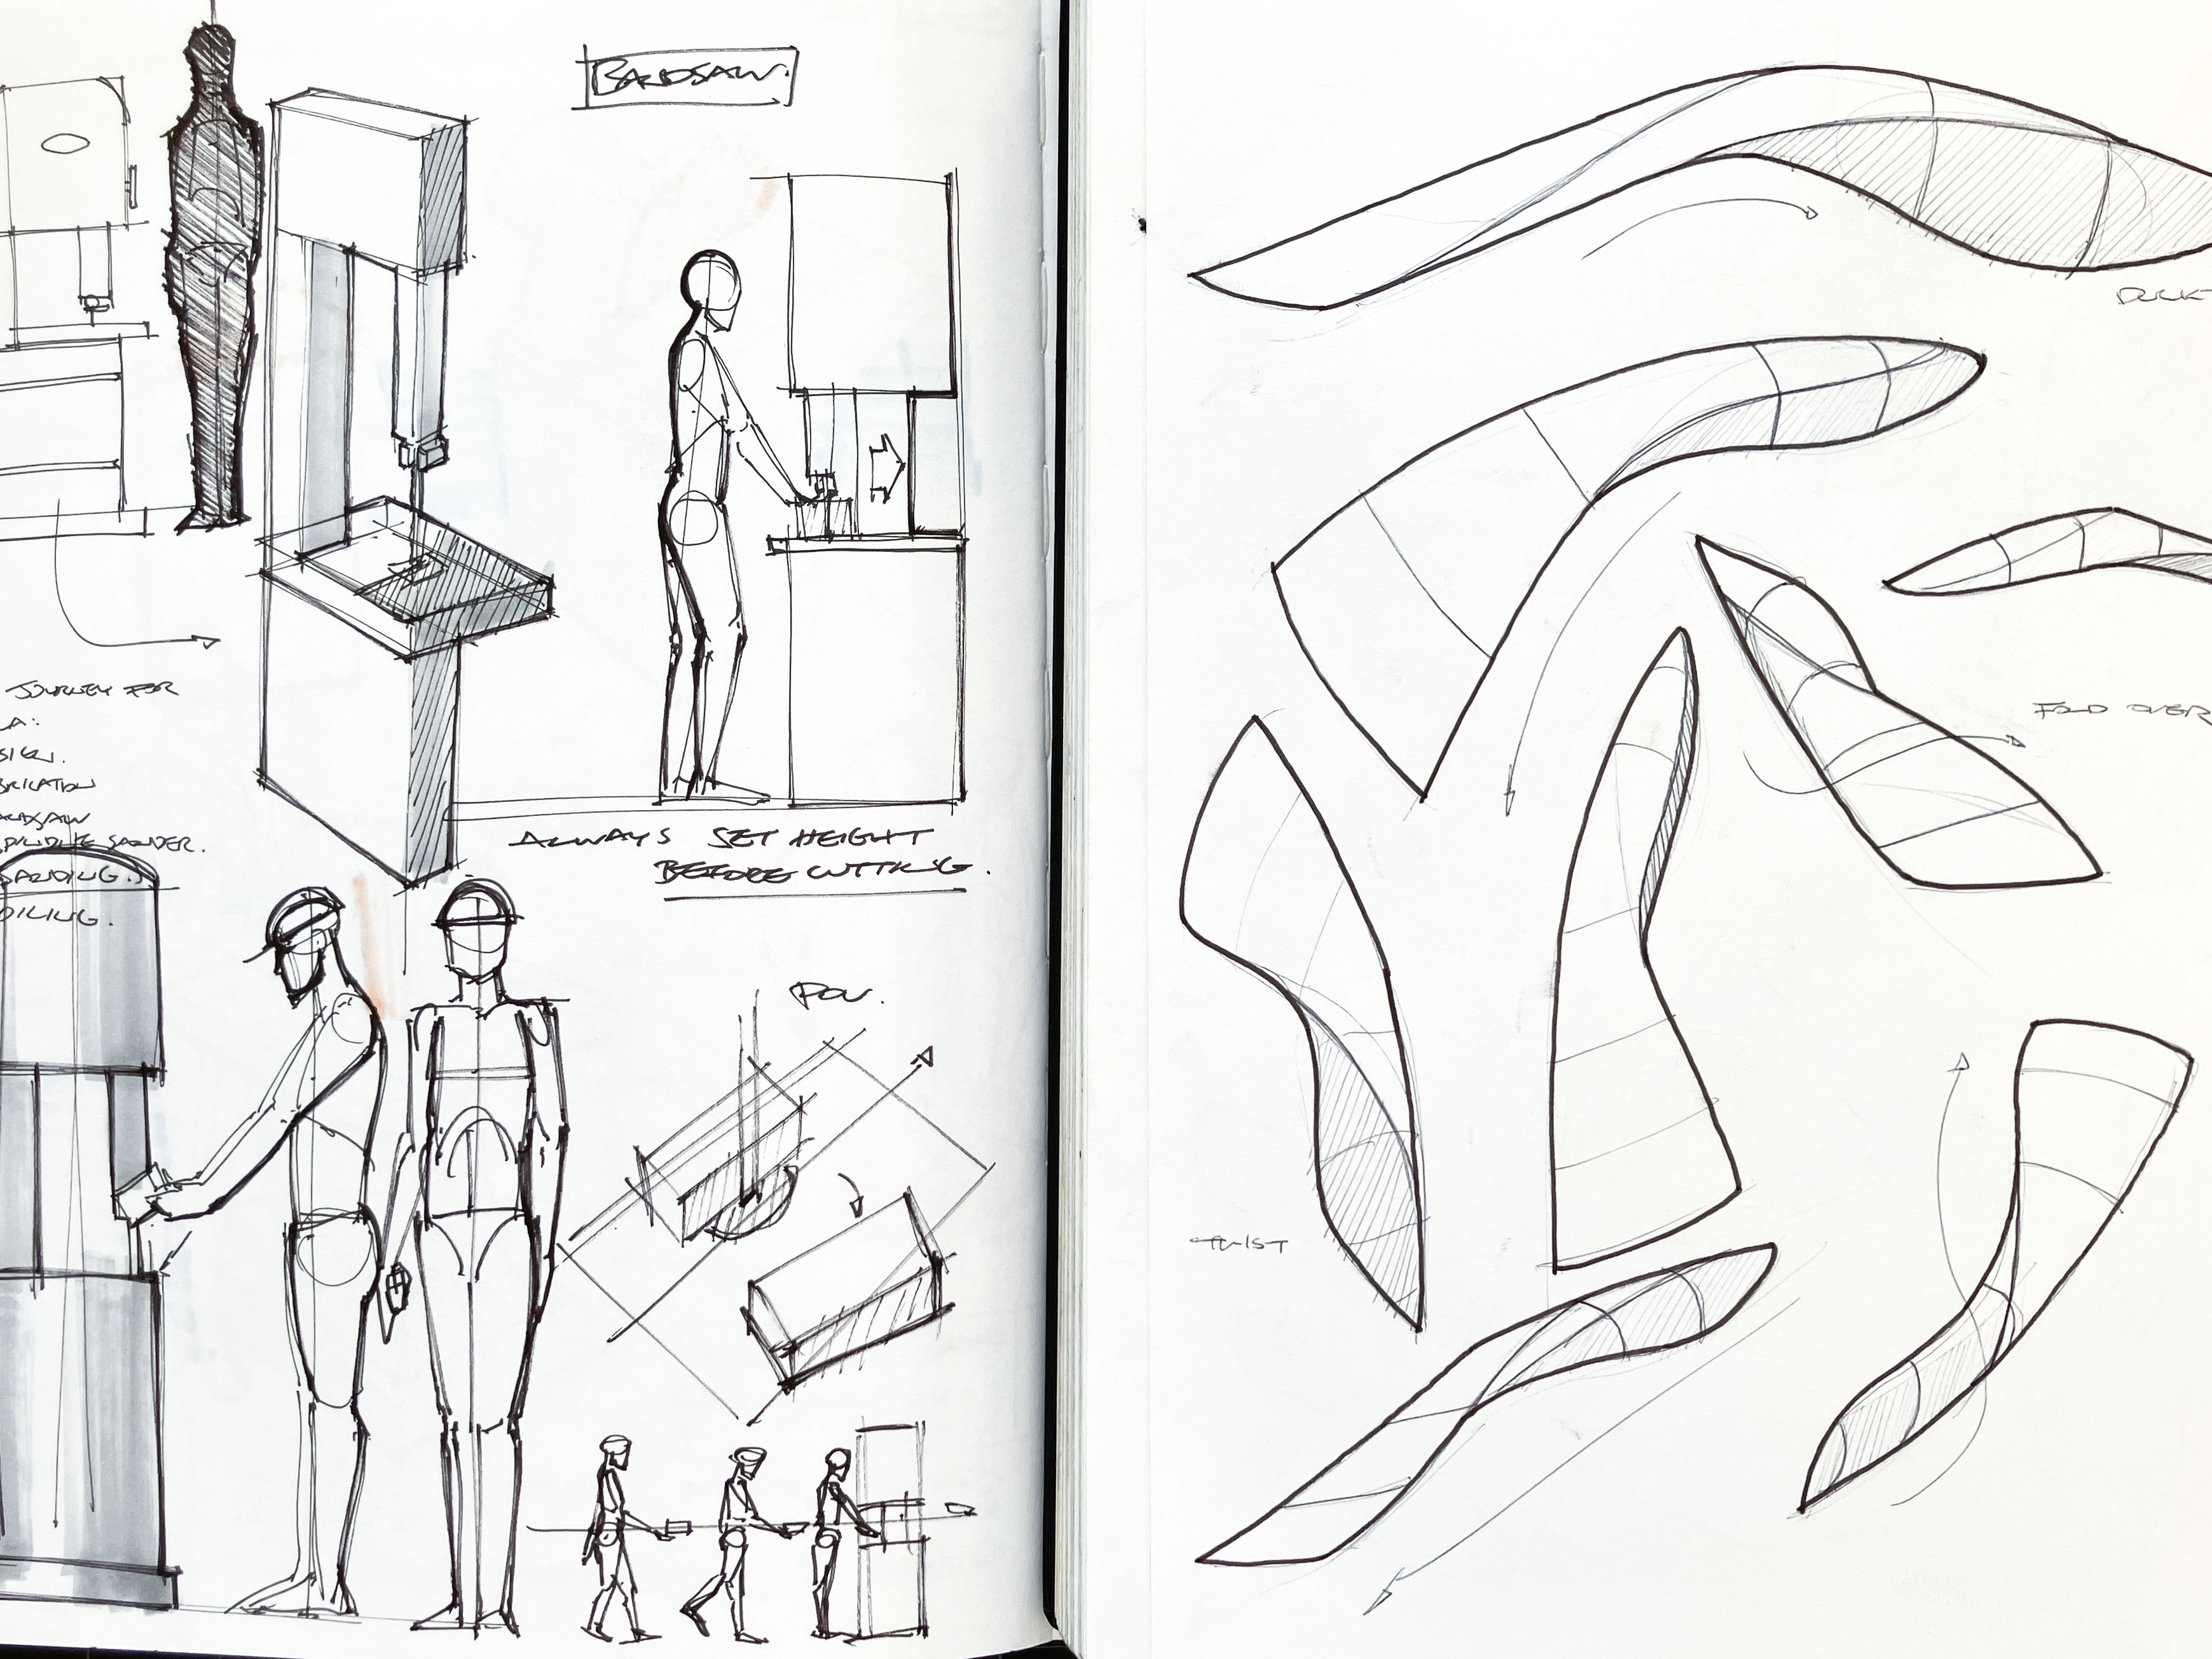 BANDSAW.
JOURNEY FOR
A:
SIGN.
BRICATION
ANDSAW
SPINDLE SANDER.
SANDING.
OILING.
ALWAYS SET HEIGHT
BEFORE CUTTING.
POV.
TWIST
FOLD OVER